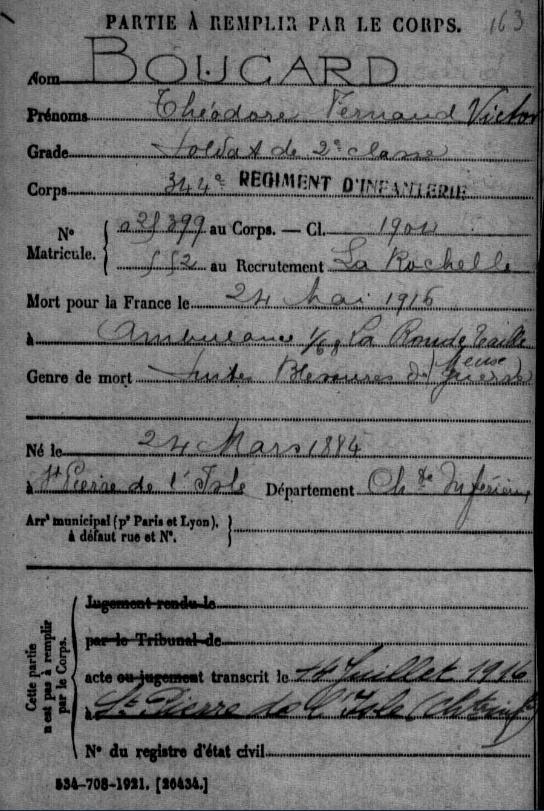 PARTIE À REMPLIR PAR LE CORPS. 163
Nom BOUCARD
Prénoms Théodore Fernand Victor
Grade Soldat de 2e classe
Corps 344e REGIMENT D'INFANTERIE
N° Matricule. 
au Corps. — Cl. 1904
552 au Recrutement La Rochelle
Mort pour la France le 24 Mai 1916
à Ambulance La Ronde Taille
(Meuse
Genre de mort Suites Blessures de guerre
Né le 24 Mars 1884
à St Pierre de l'Isle Département Ch te Inférieure
Arrt municipal (pr Paris et Lyon),
à défaut rue et N°.
Cette partie
n'est pas à remplir
par le Corps.
Jugement rendu le
par le Tribunal de
acte ou jugement transcrit le 14 Juillet 1916
à St Pierre de l'Isle
N° du registre d'état civil
534-708-1921. [26434.]